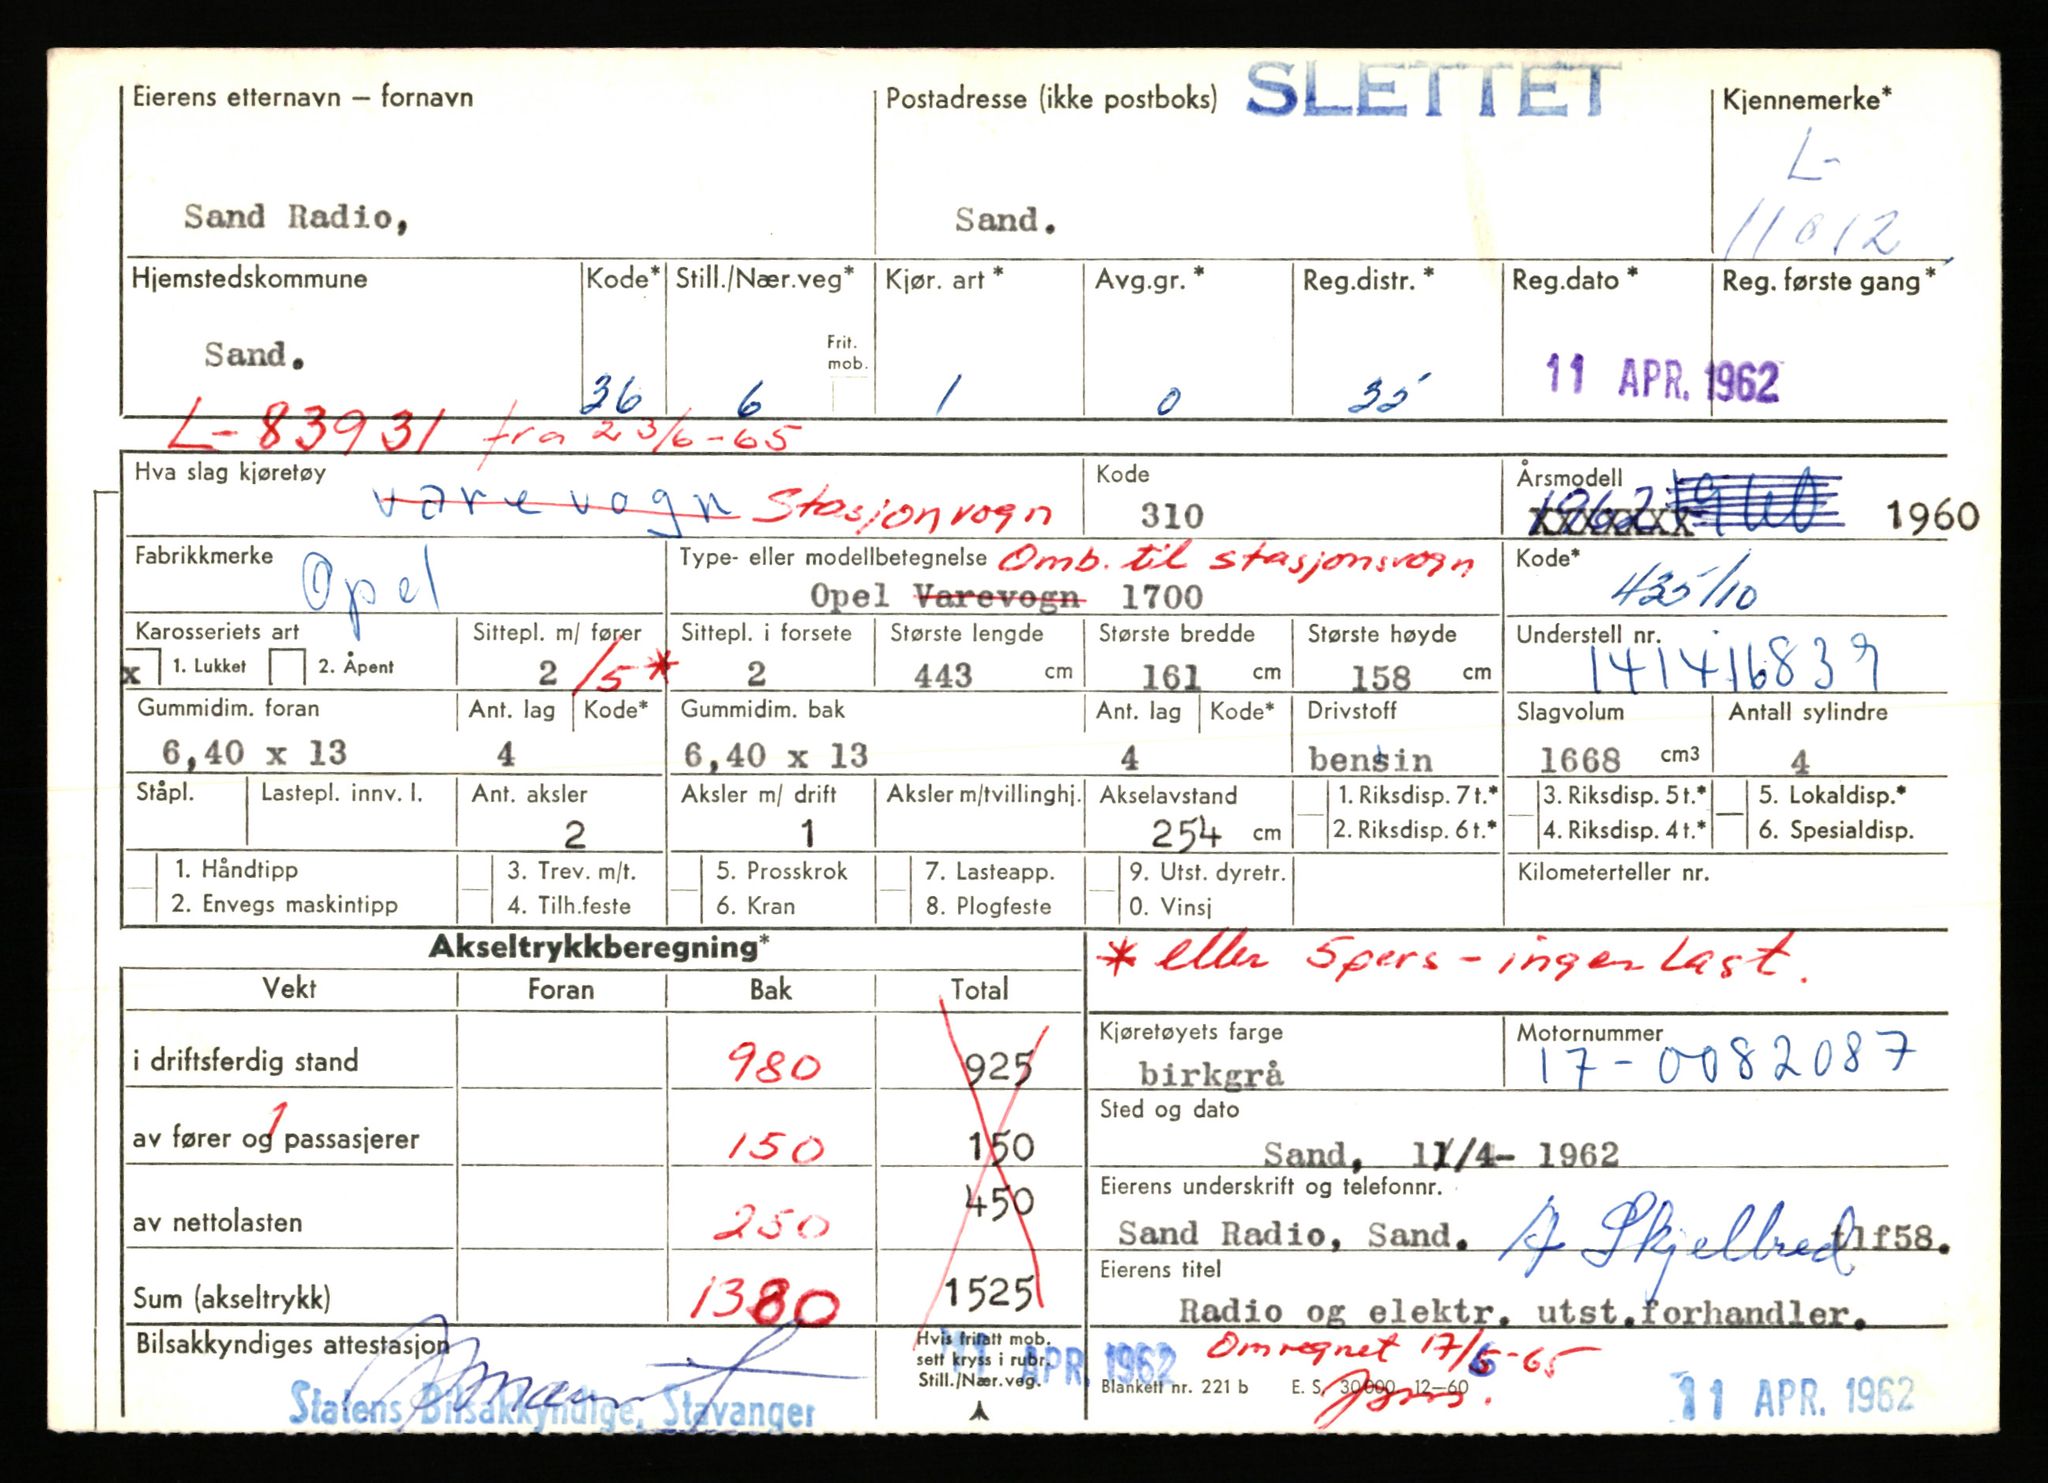 SLETTET
Eierens etternavn – fornavn Postadresse (ikke postboks) Kjennemerke*
L-
Sand Radio, Sand. 11012
Hjemstedskommune Kode* Still./Nær.veg* Kjør. art* Avg.gr.* Reg.distr.* Reg.dato* Reg. første gang*
Frit. mob.
Sand. 36 6 1 0 35 11 APR. 1962
L-83931 fra 23/6-65
Hva slag kjøretøy Kode Årsmodell
varevogn Stasjonvogn 310 1962 1960
Fabrikkmerke Type- eller modellbetegnelse Omb. til stasjonsvogn Kode*
Opel Opel Varevogn 1700 435/10
Karosseriets art Sittepl. m/ fører Sittepl. i forsete Største lengde Største bredde Største høyde Understell nr.
x 1. Lukket 2. Åpent 2/5* 2 443 cm 161 cm 158 cm 141416839
Gummidim. foran Ant. lag Kode* Gummidim. bak Ant. lag Kode* Drivstoff Slagvolum Antall sylindre
6,40 x 13 4 6,40 x 13 4 bensin 1668 cm3 4
Ståpl. Lastepl. innv. l. Ant. aksler Aksler m/ drift Aksler m/tvillinghj. Akselavstand 1. Riksdisp. 7 t.* 3. Riksdisp. 5 t.* 5. Lokaldisp.*
2 1 254 cm 2. Riksdisp. 6 t.* 4. Riksdisp. 4 t.* 6. Spesialdisp.
1. Håndtipp 3. Trev. m/t. 5. Prosskrok 7. Lasteapp. 9. Utst. dyretr. Kilometerteller nr.
2. Envegs maskintipp 4. Tilh.feste 6. Kran 8. Plogfeste 0. Vinsj
Akseltrykkberegning* * eller 5 pers - ingen Last.
Vekt Foran Bak Total
Kjøretøyets farge Motornummer
i driftsferdig stand 980 925 birkgrå 17-0082087
Sted og dato
av fører og 1 passasjerer 150 150 Sand, 11/4- 1962
Eierens underskrift og telefonnr.
av nettolasten 250 450 Sand Radio, Sand. A Skjelbred tlf58.
Eierens titel
Sum (akseltrykk) 1380 1525 Radio og elektr. utst.forhandler.
Bilsakkyndiges attestasjon Hvis fritatt mob. sett kryss i rubr. Still./Nær.veg. 11 APR. 1962 Omregnet 17/6-65
Statens Bilsakkyndige, Stavanger Blankett nr. 221 b E. S. 30000 12–60 11 APR. 1962